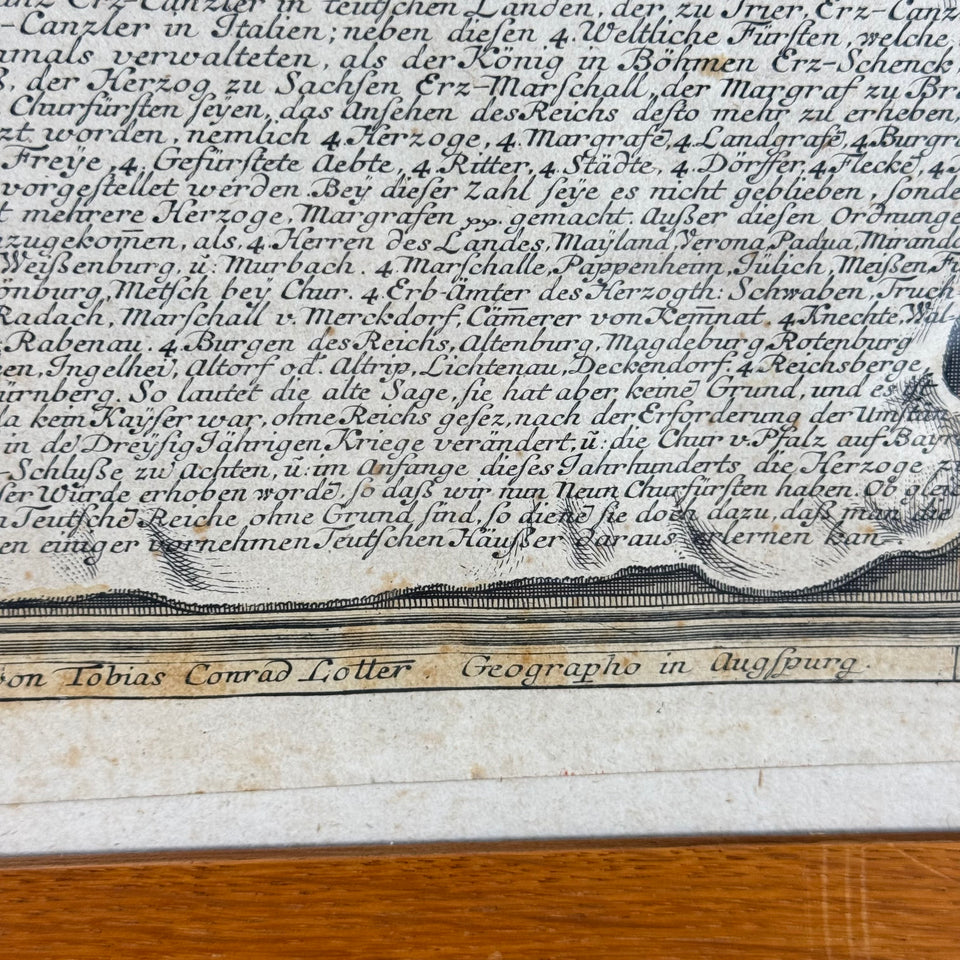 Erz-Canzler in teutſchen Landen, der zu Trier, Erz-Canz
-Canzler in Italien; neben dieſen 4. Weltliche Fürſten, welche
mals verwalteten, als der König in Böhmen Erz-Schenck,
der Herzog zu Sachſen Erz-Marſchall, der Margraf zu Br
Churfürſten ſeyen, das Anſehen des Reichs deſto mehr zu erheben,
zt worden, nemlich 4. Herzoge, 4. Margrafē, 4. Landgrafē, 4. Burgra
Freÿe, 4. Gefürſtete Aebte, 4. Ritter, 4. Städte, 4. Dörffer, 4. Fleckē, 4.
vorgeſtellet werden. Bey dieſer Zahl ſeye es nicht geblieben, ſonde
t mehrere Herzoge, Margrafen pp. gemacht. Außer dieſen Ordnunge
zugekom̄en, als, 4. Herren des Landes, Maÿland, Verona, Padua, Mirando
Weißenburg, ū: Murbach. 4. Marſchalle, Pappenheim, Jülich, Meißen, Fi
önburg, Metſch bey Chur. 4. Erb-Ämter des Herzogth: Schwaben, Truch
Radach, Marſchall v. Merckdorf, Cäm̄erer von Kem̄nat, 4. Knechte, Wal-
Rabenau. 4. Burgen des Reichs, Altenburg, Magdeburg, Rotenburg
en, Ingelhei, Altorf od. Altrip, Lichtenau, Deckendorf. 4. Reichsberge
ürnberg. So lautet die alte Sage, ſie hat aber keinē Grund, und es iſt
da kein Kaÿſer war, ohne Reichs geſez, nach der Erforderung der Umſtän
in dē Dreÿſig Jährigen Kriege verändert, ū: die Chur v. Pfalz auf Bayr
-Schluße zw Achten, ū: im Anfange dieſes Jahrhunderts die Herzoge z
ſer Würde erhoben wordē, ſo daß wir nun Neun Churfürſten haben. Ob glei
Teutſchē Reiche ohne Grund ſind, ſo dienē ſie doch dazu, daß man die
en einiger vornehmen Teutſchen Häuſſer daraus erlernen kan
von Tobias Conrad Lotter. Geographo in Augſpurg.